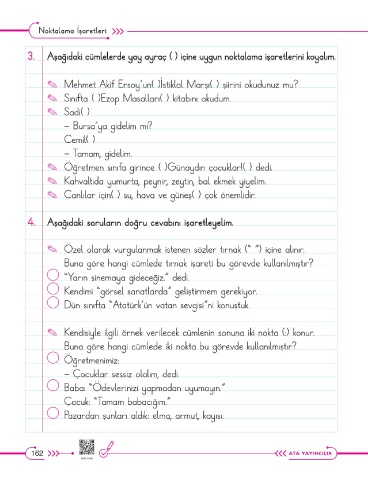 Noktalama İşaretleri
3. Aşağıdaki cümlelerde yay ayraç ( ) içine uygun noktalama işaretlerini koyalım.
Mehmet Akif Ersoy'un( )İstiklal Marşı( ) şiirini okudunuz mu?
Sınıfta ( )Ezop Masalları( ) kitabını okudum.
Sadi( )
– Bursa'ya gidelim mi?
Cemil( )
– Tamam, gidelim.
Öğretmen sınıfa girince ( )Günaydın çocuklar!( ) dedi.
Kahvaltıda yumurta, peynir, zeytin, bal ekmek yiyelim.
Canlılar için( ) su, hava ve güneş( ) çok önemlidir.
4. Aşağıdaki soruların doğru cevabını işaretleyelim.
Özel olarak vurgulanmak istenen sözler tırnak (“ ”) içine alınır.
Buna göre hangi cümlede tırnak işareti bu görevde kullanılmıştır?
“Yarın sinemaya gideceğiz.” dedi.
Kendimi “görsel sanatlarda” geliştirmem gerekiyor.
Dün sınıfta “Atatürk'ün vatan sevgisi”ni konuştuk.
Kendisiyle ilgili örnek verilecek cümlenin sonuna iki nokta (:) konur.
Buna göre hangi cümlede iki nokta bu görevde kullanılmıştır?
Öğretmenimiz:
– Çocuklar sessiz olalım, dedi.
Baba: “Ödevlerinizi yapmadan uyumayın.”
Çocuk: “Tamam babacığım.”
Pazardan şunları aldık: elma, armut, kayısı.
162
ATA YAYINCILIK